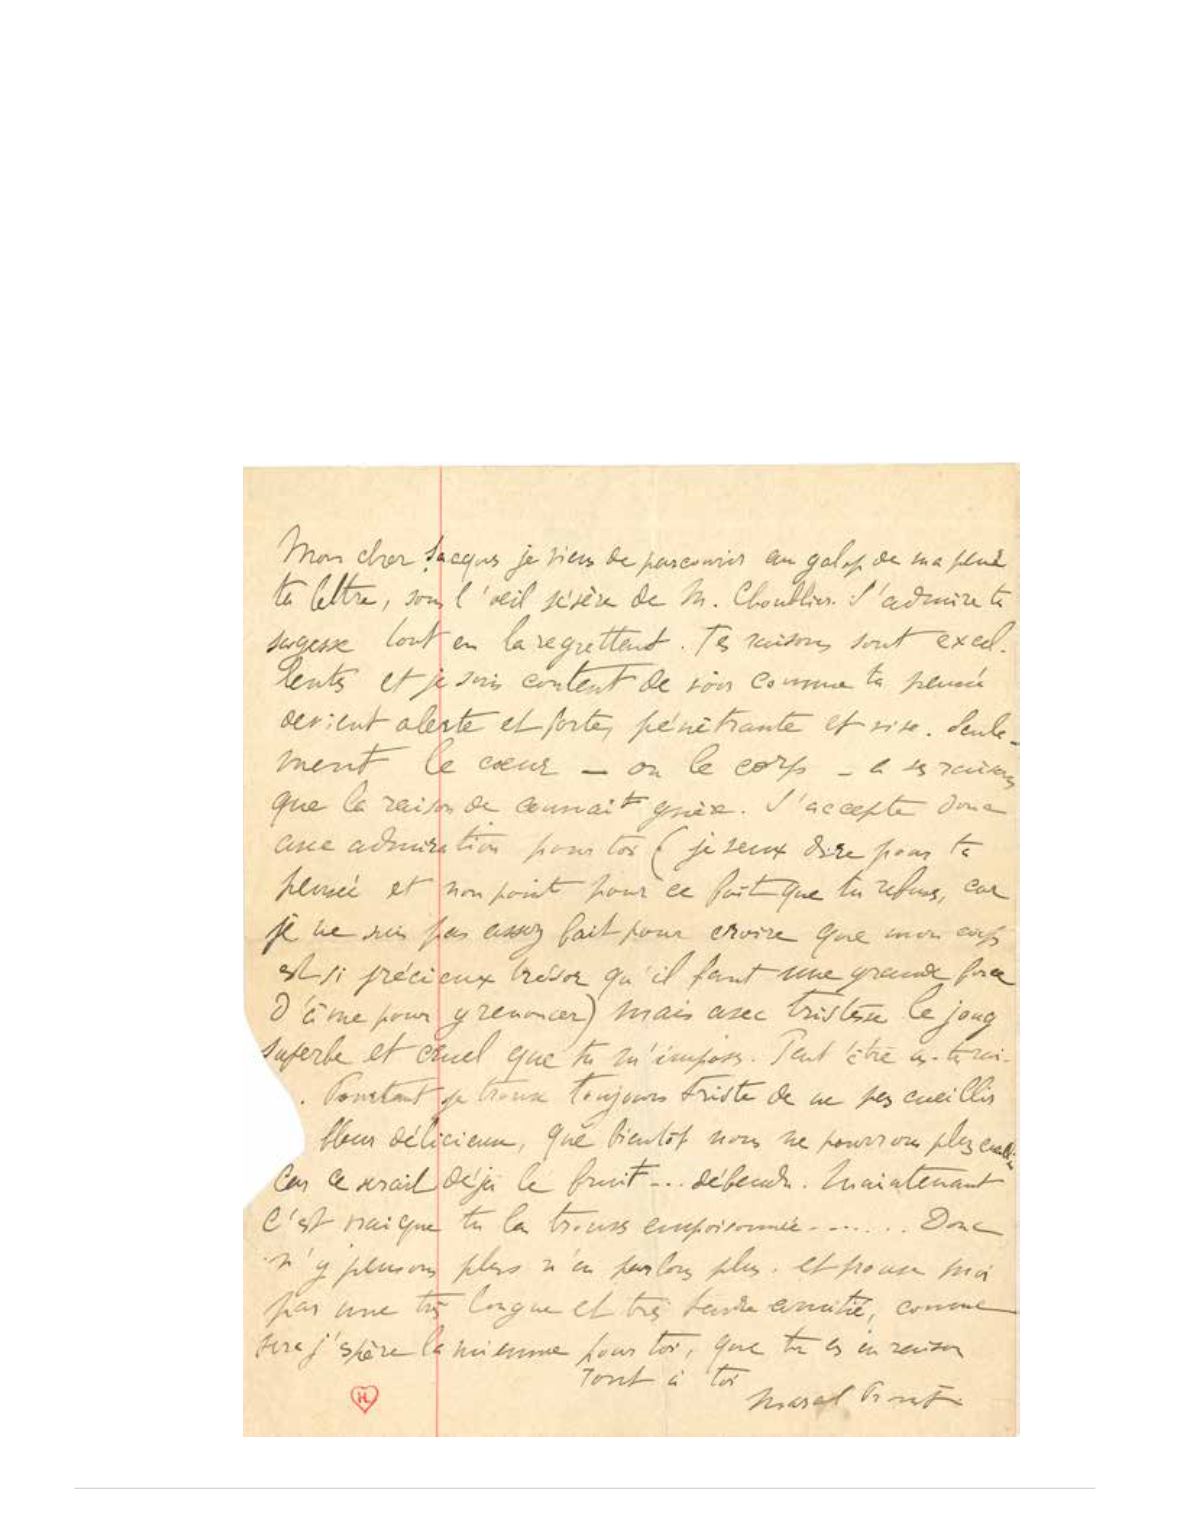 Mon cher Jacques je viens de parcourir au galop de ma pensée
ta lettre, sous l'œil sévère de M. Choublier. J'admire ta
sagesse tout en la regrettant. Tes raisons sont excel-
lentes et je suis content de voir comme ta pensée
devient alerte et forte, pénétrante et vive. Seule-
ment le cœur — ou le corps — a ses raisons
que la raison ne connait guère. J'accepte donc
avec admiration pour toi (je veux dire pour ta
pensée et non point pour ce fait que tu refuses, car
je ne suis pas assez fait pour croire que mon corps
est si précieux trésor qu'il faut une grande force
d'âme pour y renoncer) mais avec tristesse le joug
superbe et cruel que tu m'imposes. Peut être as-tu rai-
. Pourtant je trouve toujours triste de ne pas cueillir
fleur délicieuse, que bientôt nous ne pourrons plus cueillir
Car ce serait déjà le fruit... défendu. Maintenant
C'est vrai que tu la trouves empoisonnée....... Donc
n'y pensons plus n'en parlons plus. et prouve moi
par une très longue et très tendre amitié, comme
sera j'espère la mienne pour toi, que tu as eu raison
Tout à toi
Marcel Proust
H